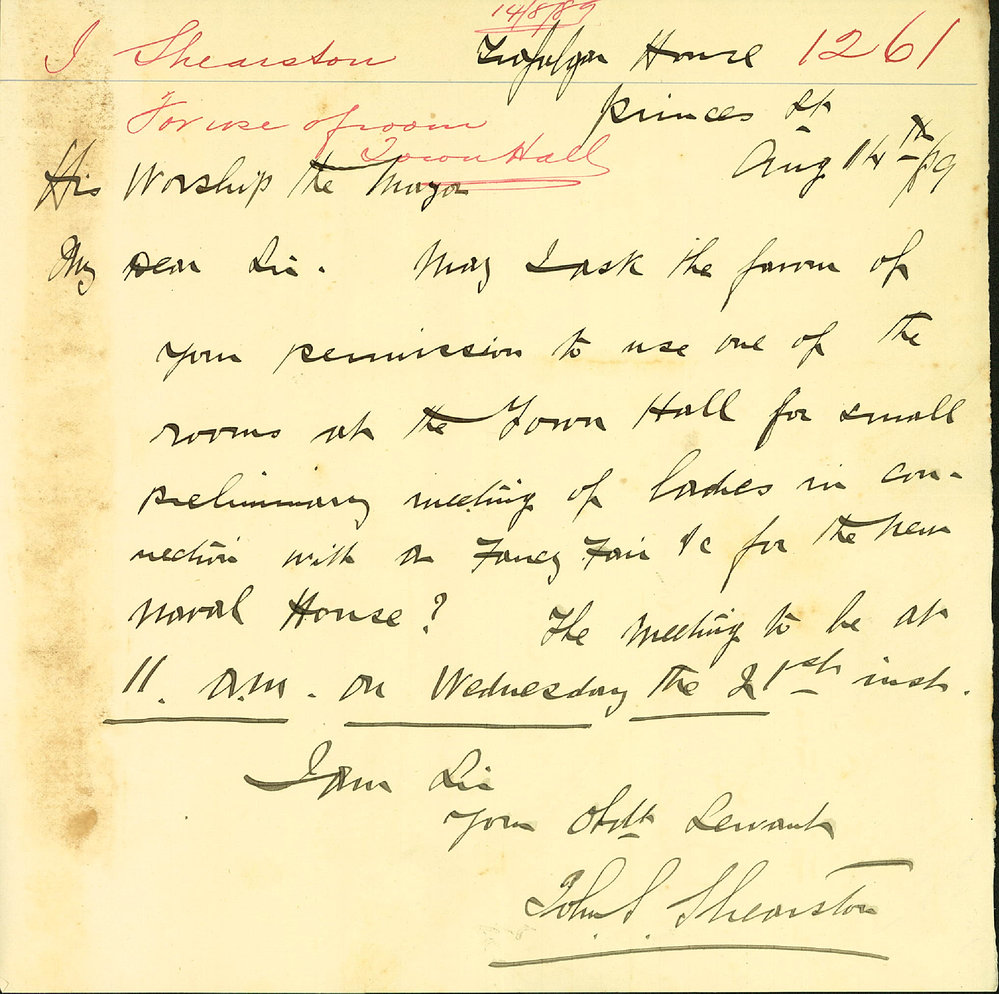 14/8/89
J Shearston Trafalgar House 1261
For use of room
Town Hall
Princes St
Aug 14th/89
His Worship the Mayor
My Dear Sir. May I ask the favour of
your permission to use one of the
rooms at the Town Hall for small
preliminary meeting of ladies in con-
nection with a Fancy Fair &c for the New
Naval House? The meeting to be at
11. a.m. on Wednesday the 21st inst.
I am Sir
Your Obdt Servant
John S. Shearston